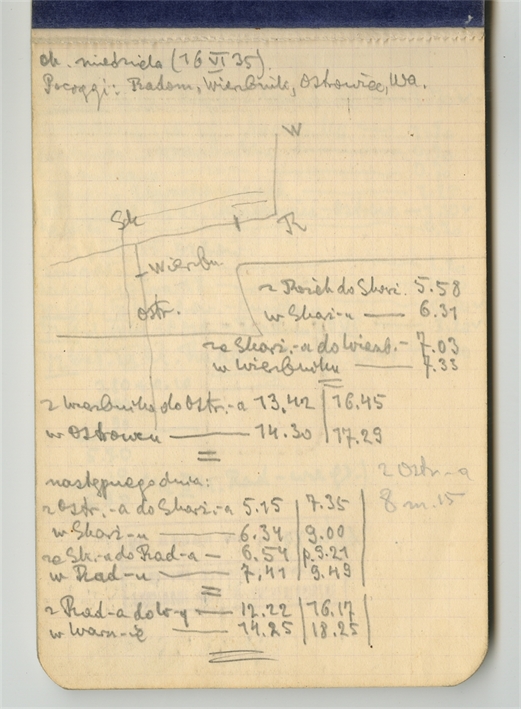 ok. niedziela (16 VI 35)
Pociągi: Radom, Wierzbnik, Ostrowiec, Wa.
W
Sk R
Wierzbn
Ostr.
z do Skarż. 5.58
w Skarż-u — 6.31
ze Skarż.-a do Wierzb. - 7.03
w Wierzbniku — 7.33
z Wierzbnika do Ostr.-a 13.42 | 16.45
w Ostrowcu — 14.30 | 17.29
następnego dnia:
z Ostr.-a do Skarż.-a 5.15 | 7.35 |
z Ostr-a
8 m. 15
w Skarż-u — 6.34 | 9.00
ze Sk.-a do Rad-a — 6.54 | p. 9.21
w Rad-u — 7.41 | 9.49
z Rad-a do W-y — 12.22 | 16.17
w Warsz-ie — 14.25 | 18.25